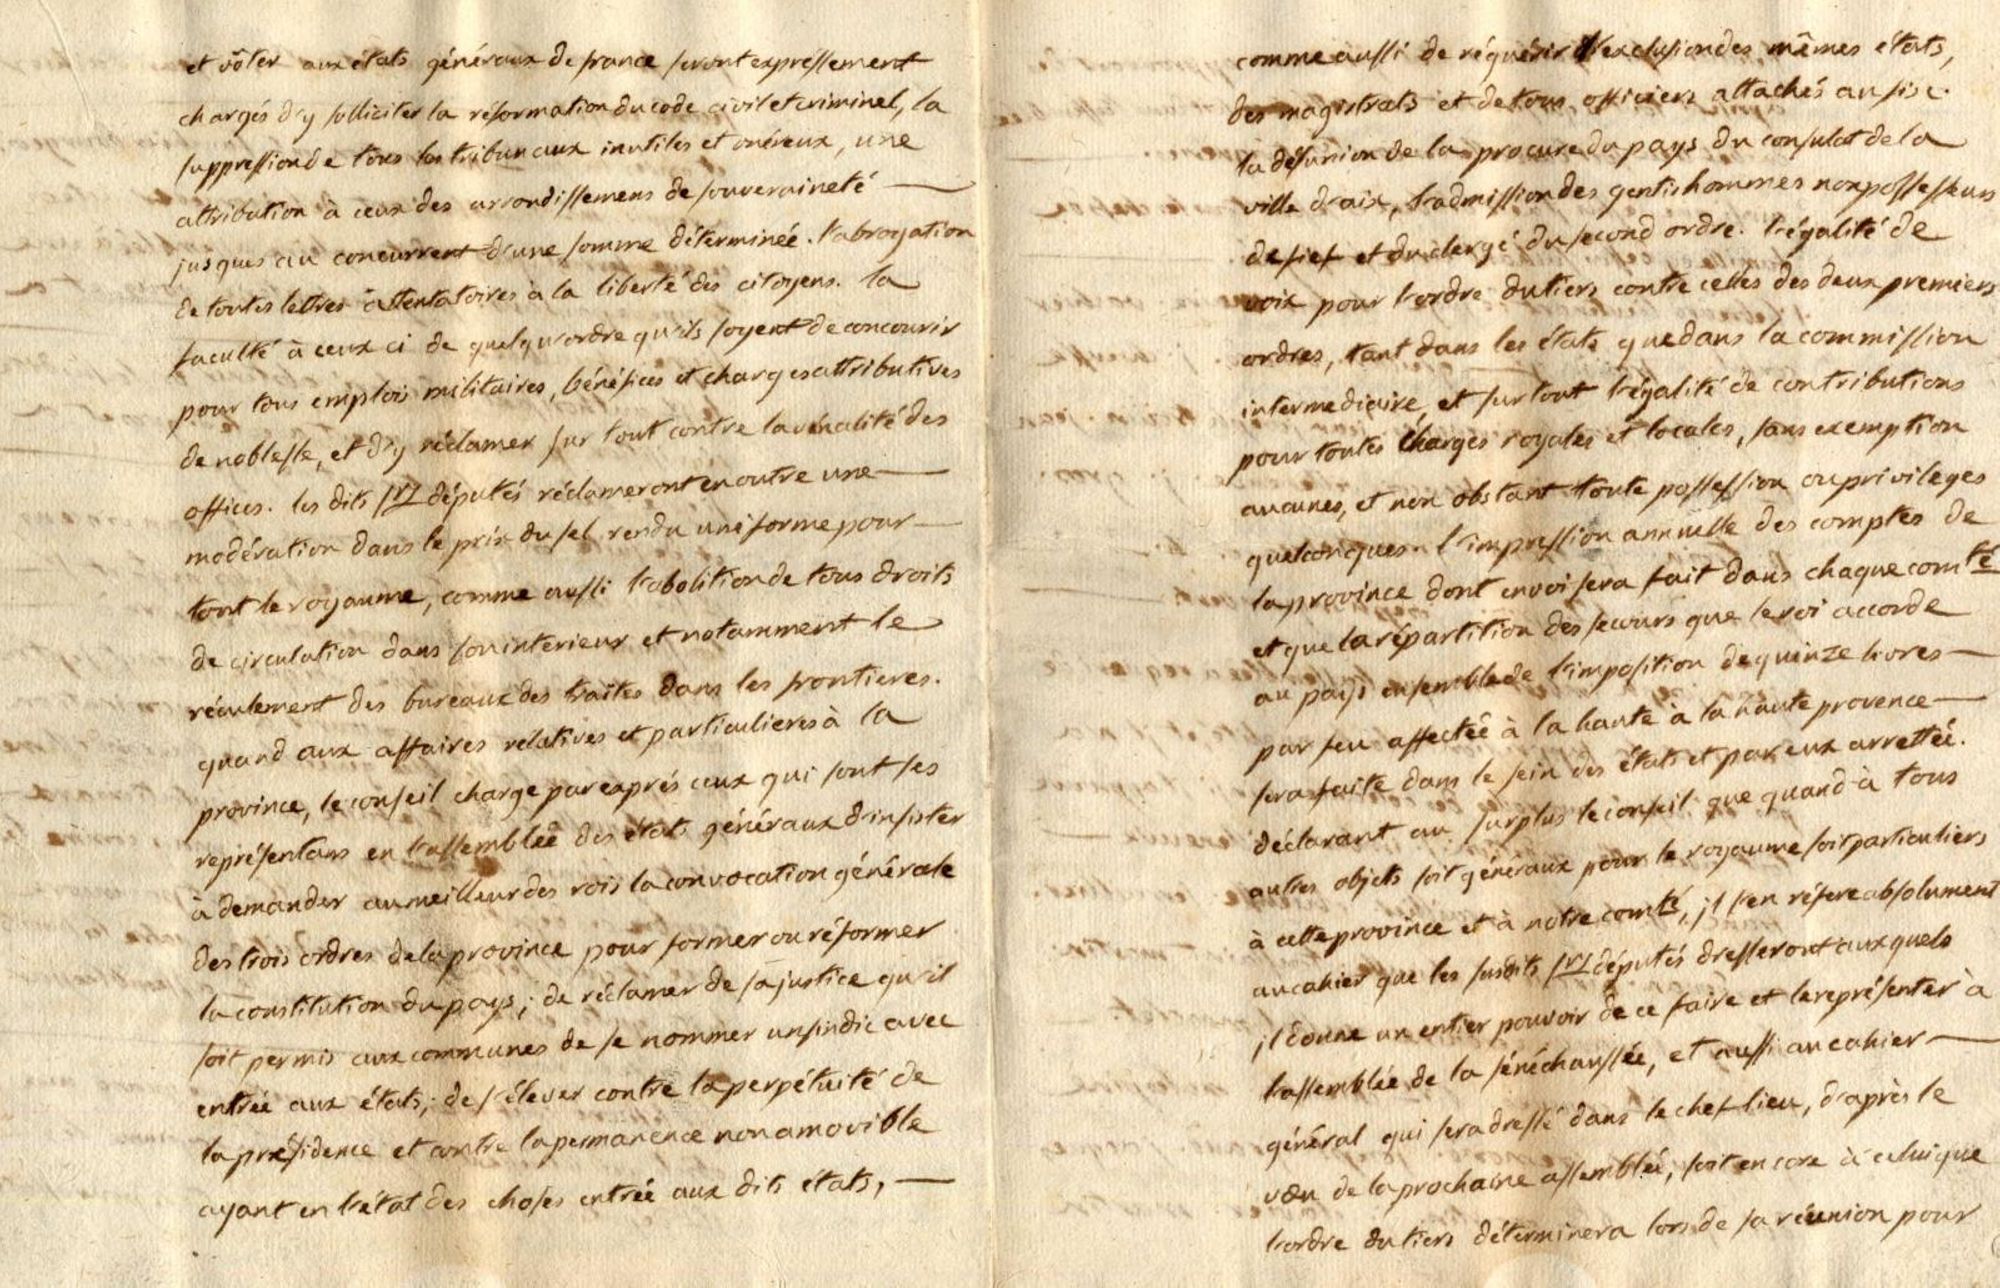 et vôter aux états généraux de france seront expréssement
chargés d'y solliciter la réformation du code civil et criminel, la
suppression de tous les tribunaux inutiles et onéreux, une
attribution à ceux des arrondissemens de souveraineté —
jusques au concurrent d'une somme déterminée. l'abrogation
de toutes lettres attentatoires à la liberté des citoyens. la
faculté à ceux ci de quelqu'ordre qu'ils soyent de concourir
pour tous emplois militaires, bénéfices et charges attributives
de noblesse, et d'y réclamer sur tout contre la vénalité des
offices. les dits srs députés réclameront en outre une —
modération dans le prix du sel rendu uniforme pour —
tout le royaume, comme aussi l'abolition de tous droits
de circulation dans son interieur et notamment le
réculement des bureaux des traites dans les frontieres.
quand aux affaires relatives et particulieres à la
province, le conseil charge par exprés ceux qui sont ses
représentans en l'assemblée des états généraux d'insister
à demander au meilleur des rois la convocation générale
des trois ordres de la province pour former ou réformer
la constitution du pays; de réclamer de sa justice qu'il
soit permis aux communes de se nommer un sindic avec
entrée aux états; de s'élever contre la perpétuité de
la présidence et contre la permanence non amovible
ayant en l'état des choses entrée aux dits états, —
comme aussi de réquérir l'exclusion des mêmes états,
des magistrats et de tous officiers attachés au fisc.
la désunion de la procure du pays du consulat de la
ville d'aix, l'admission des gentishommes non possesseurs
de fief et du clergé du second ordre. l'égalité de
voix pour l'ordre du tiers contre celles des deux premiers
ordres, tant dans les états que dans la commission
intermediaire, et sur tout l'égalité de contributions
pour toutes charges royales et locales, sans exemption
aucunes, et non obstant toute possession ou privileges
quelconques. l'impression annuelle des comptes de
la province dont envoi sera fait dans chaque comté
et que la répartition des secours que le roi accorde
au pays ensemble de l'imposition de quinze livres —
par feu affectée à la haute à la haute provence —
sera faite dans le sein des états et par eux arrettée.
déclarant au surplus le conseil que quand à tous
autres objets soit généraux pour le royaume soit particuliers
à cette province et à notre comté, il s'en réfere absolument
au cahier que les susdits srs députés dresseront aux quels
il donne un entier pouvoir de ce faire et le représenter à
l'assemblée de la sénéchaussée, et aussi au cahier —
général qui sera dressé dans le chef lieu, d'après le
vœu de la prochaine assemblée, soit encore à celui que
l'ordre du tiers déterminera lors de sa réunion pour